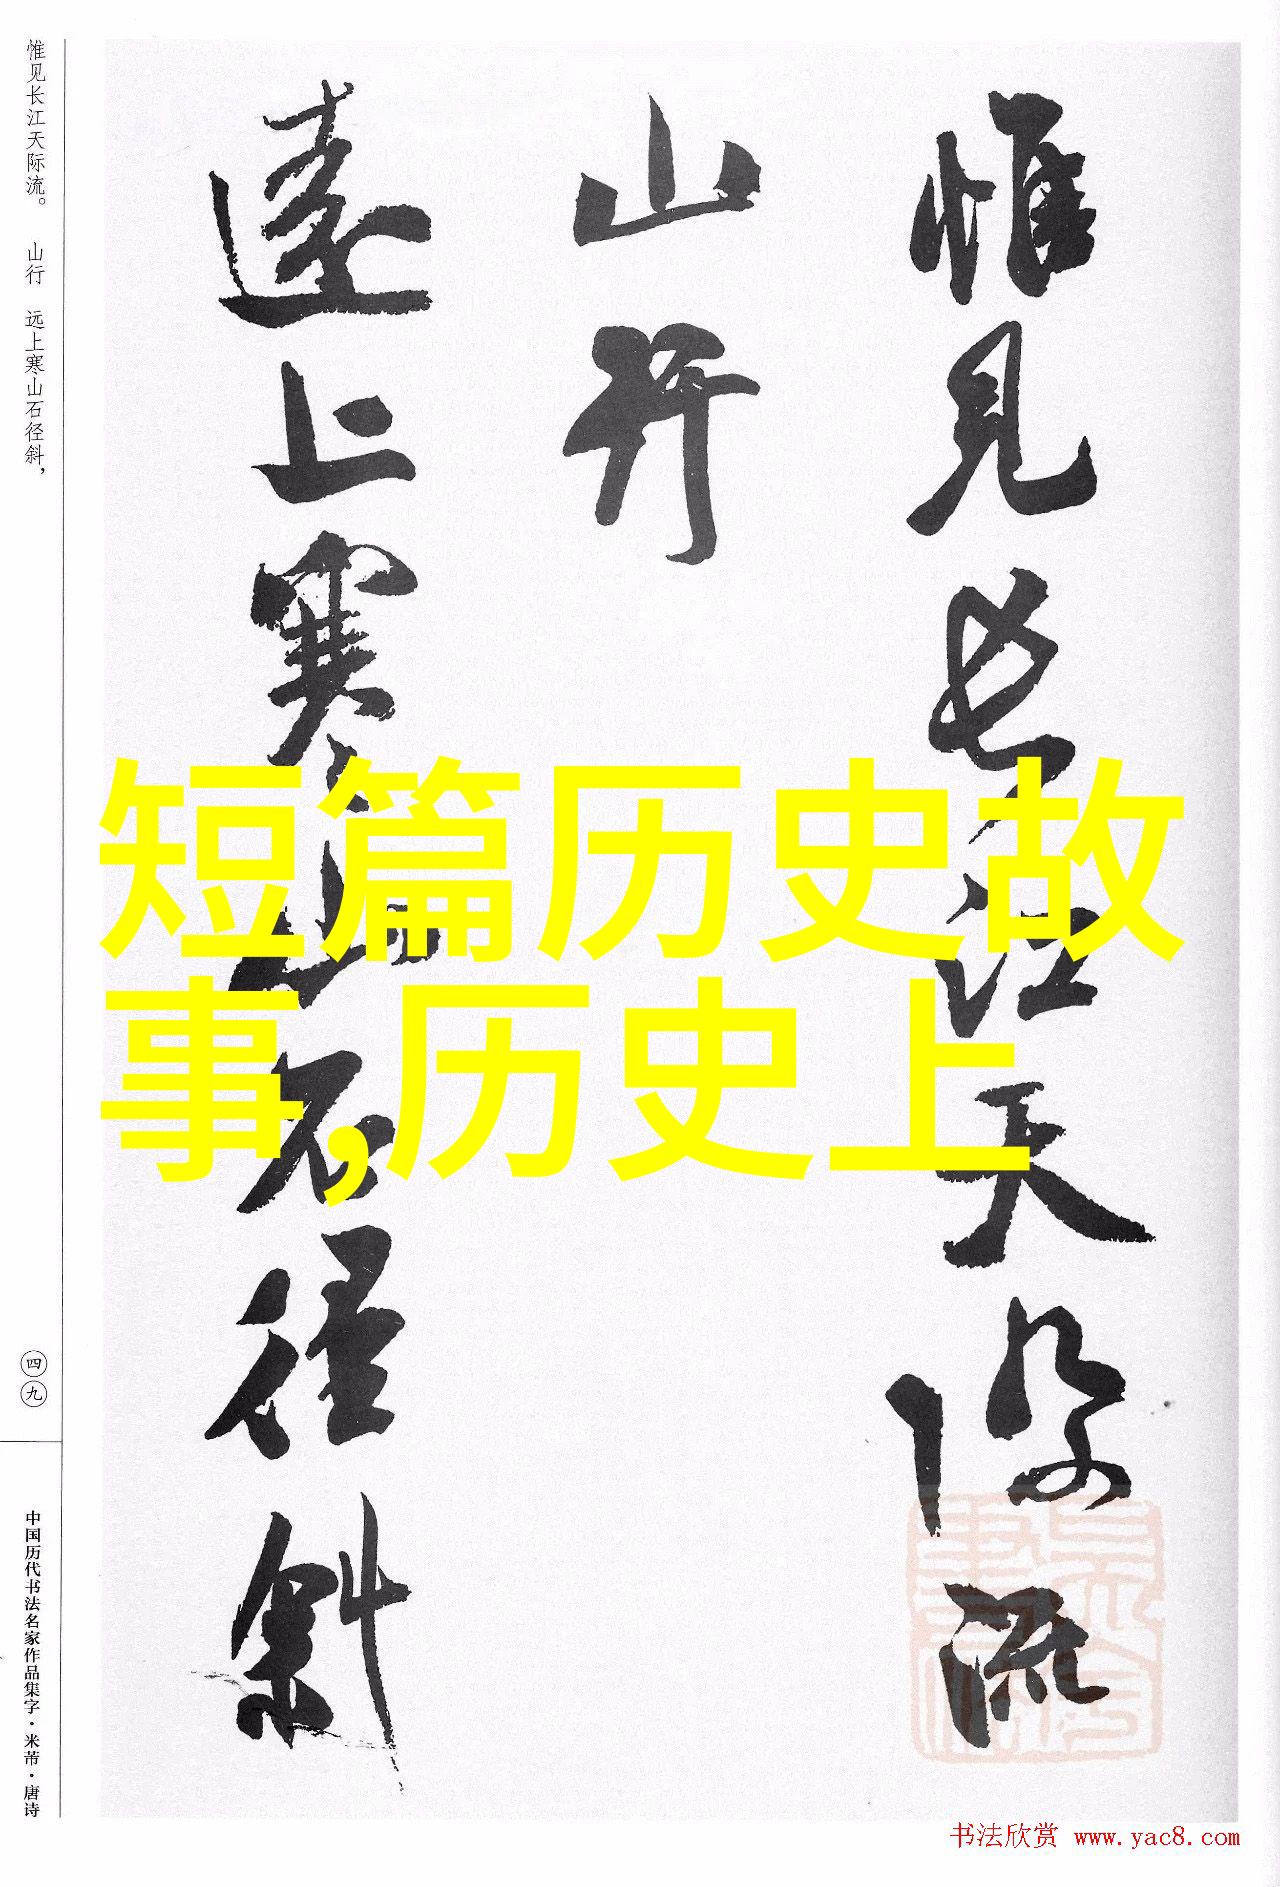 惟见长江天际流。 山行 远上寒山石径斜，
惟見長江天際流
山行
遠上寒山石徑斜
短篇历史故
事,历史上
四九
中国历代书法名家作品集字·米芾·唐诗
书法欣赏 www.yac8.com